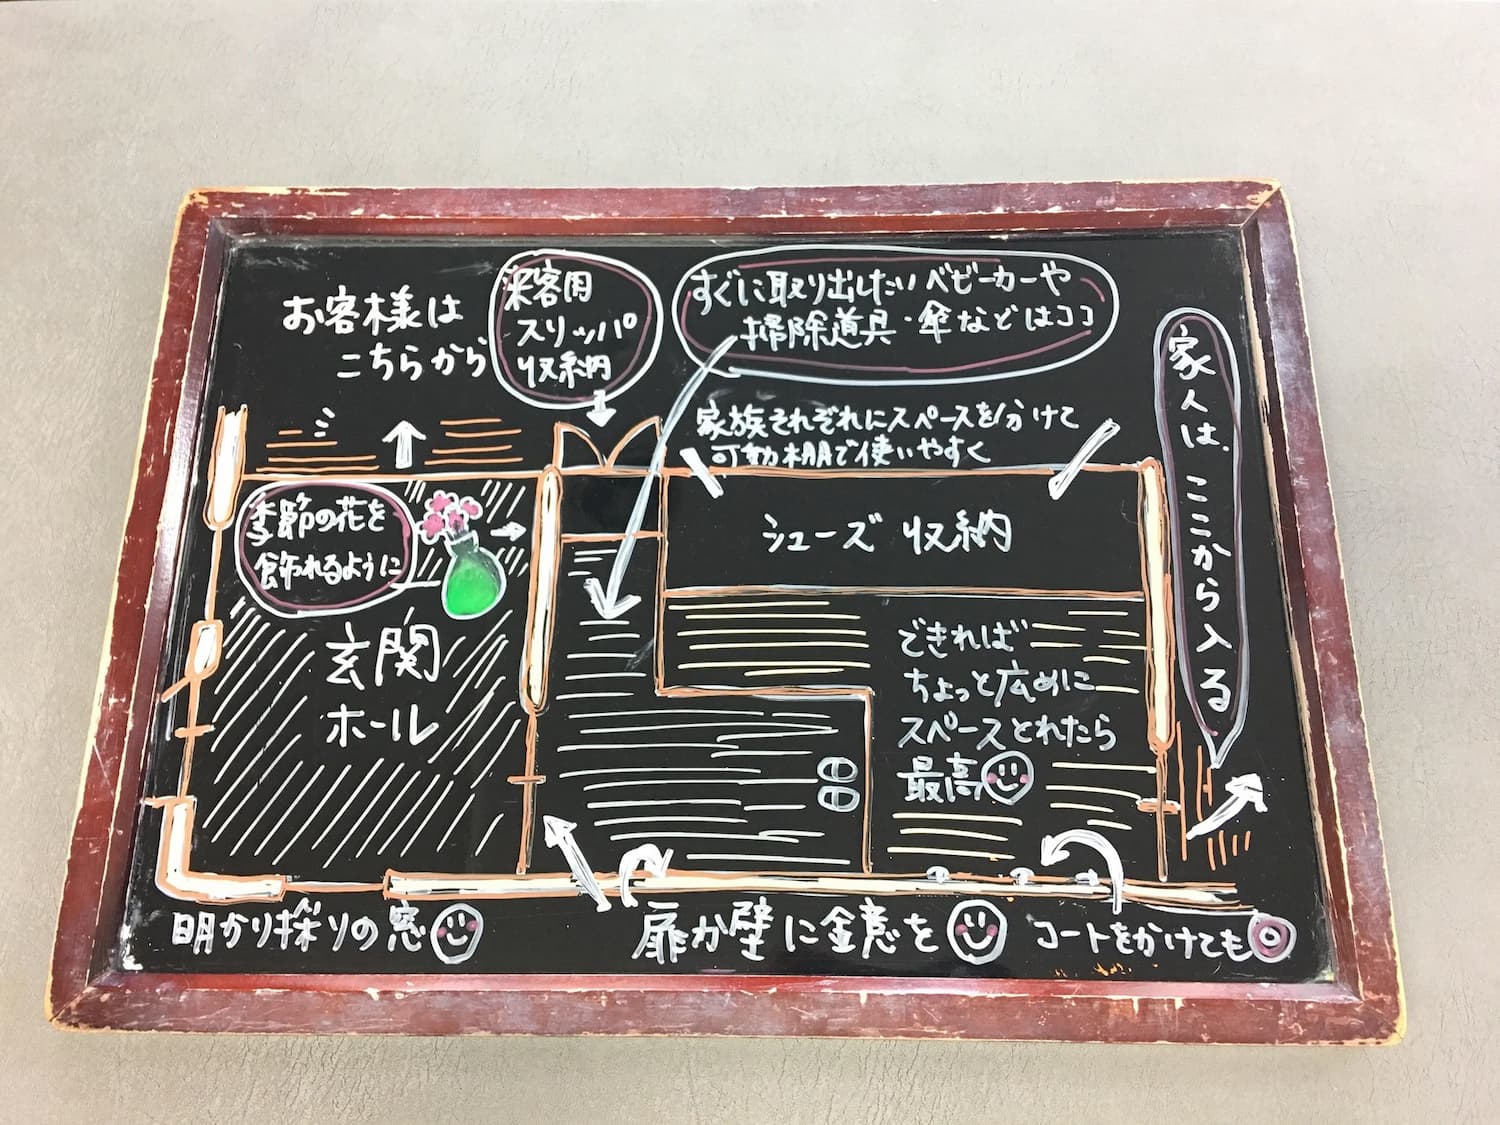 お客様は
こちらから
来客用
スリッパ
収納
すぐに取り出したいベビーカーや
掃除道具・傘などはココ
家族それぞれにスペースを分けて
可動棚で使いやすく
家人は、ここから入る
季節の花を
飾れるように
シューズ収納
玄関
ホール
できれば
ちょっと広めに
スペースとれたら
最高
明かり採りの窓
扉か壁に金意を
コートをかけても◎